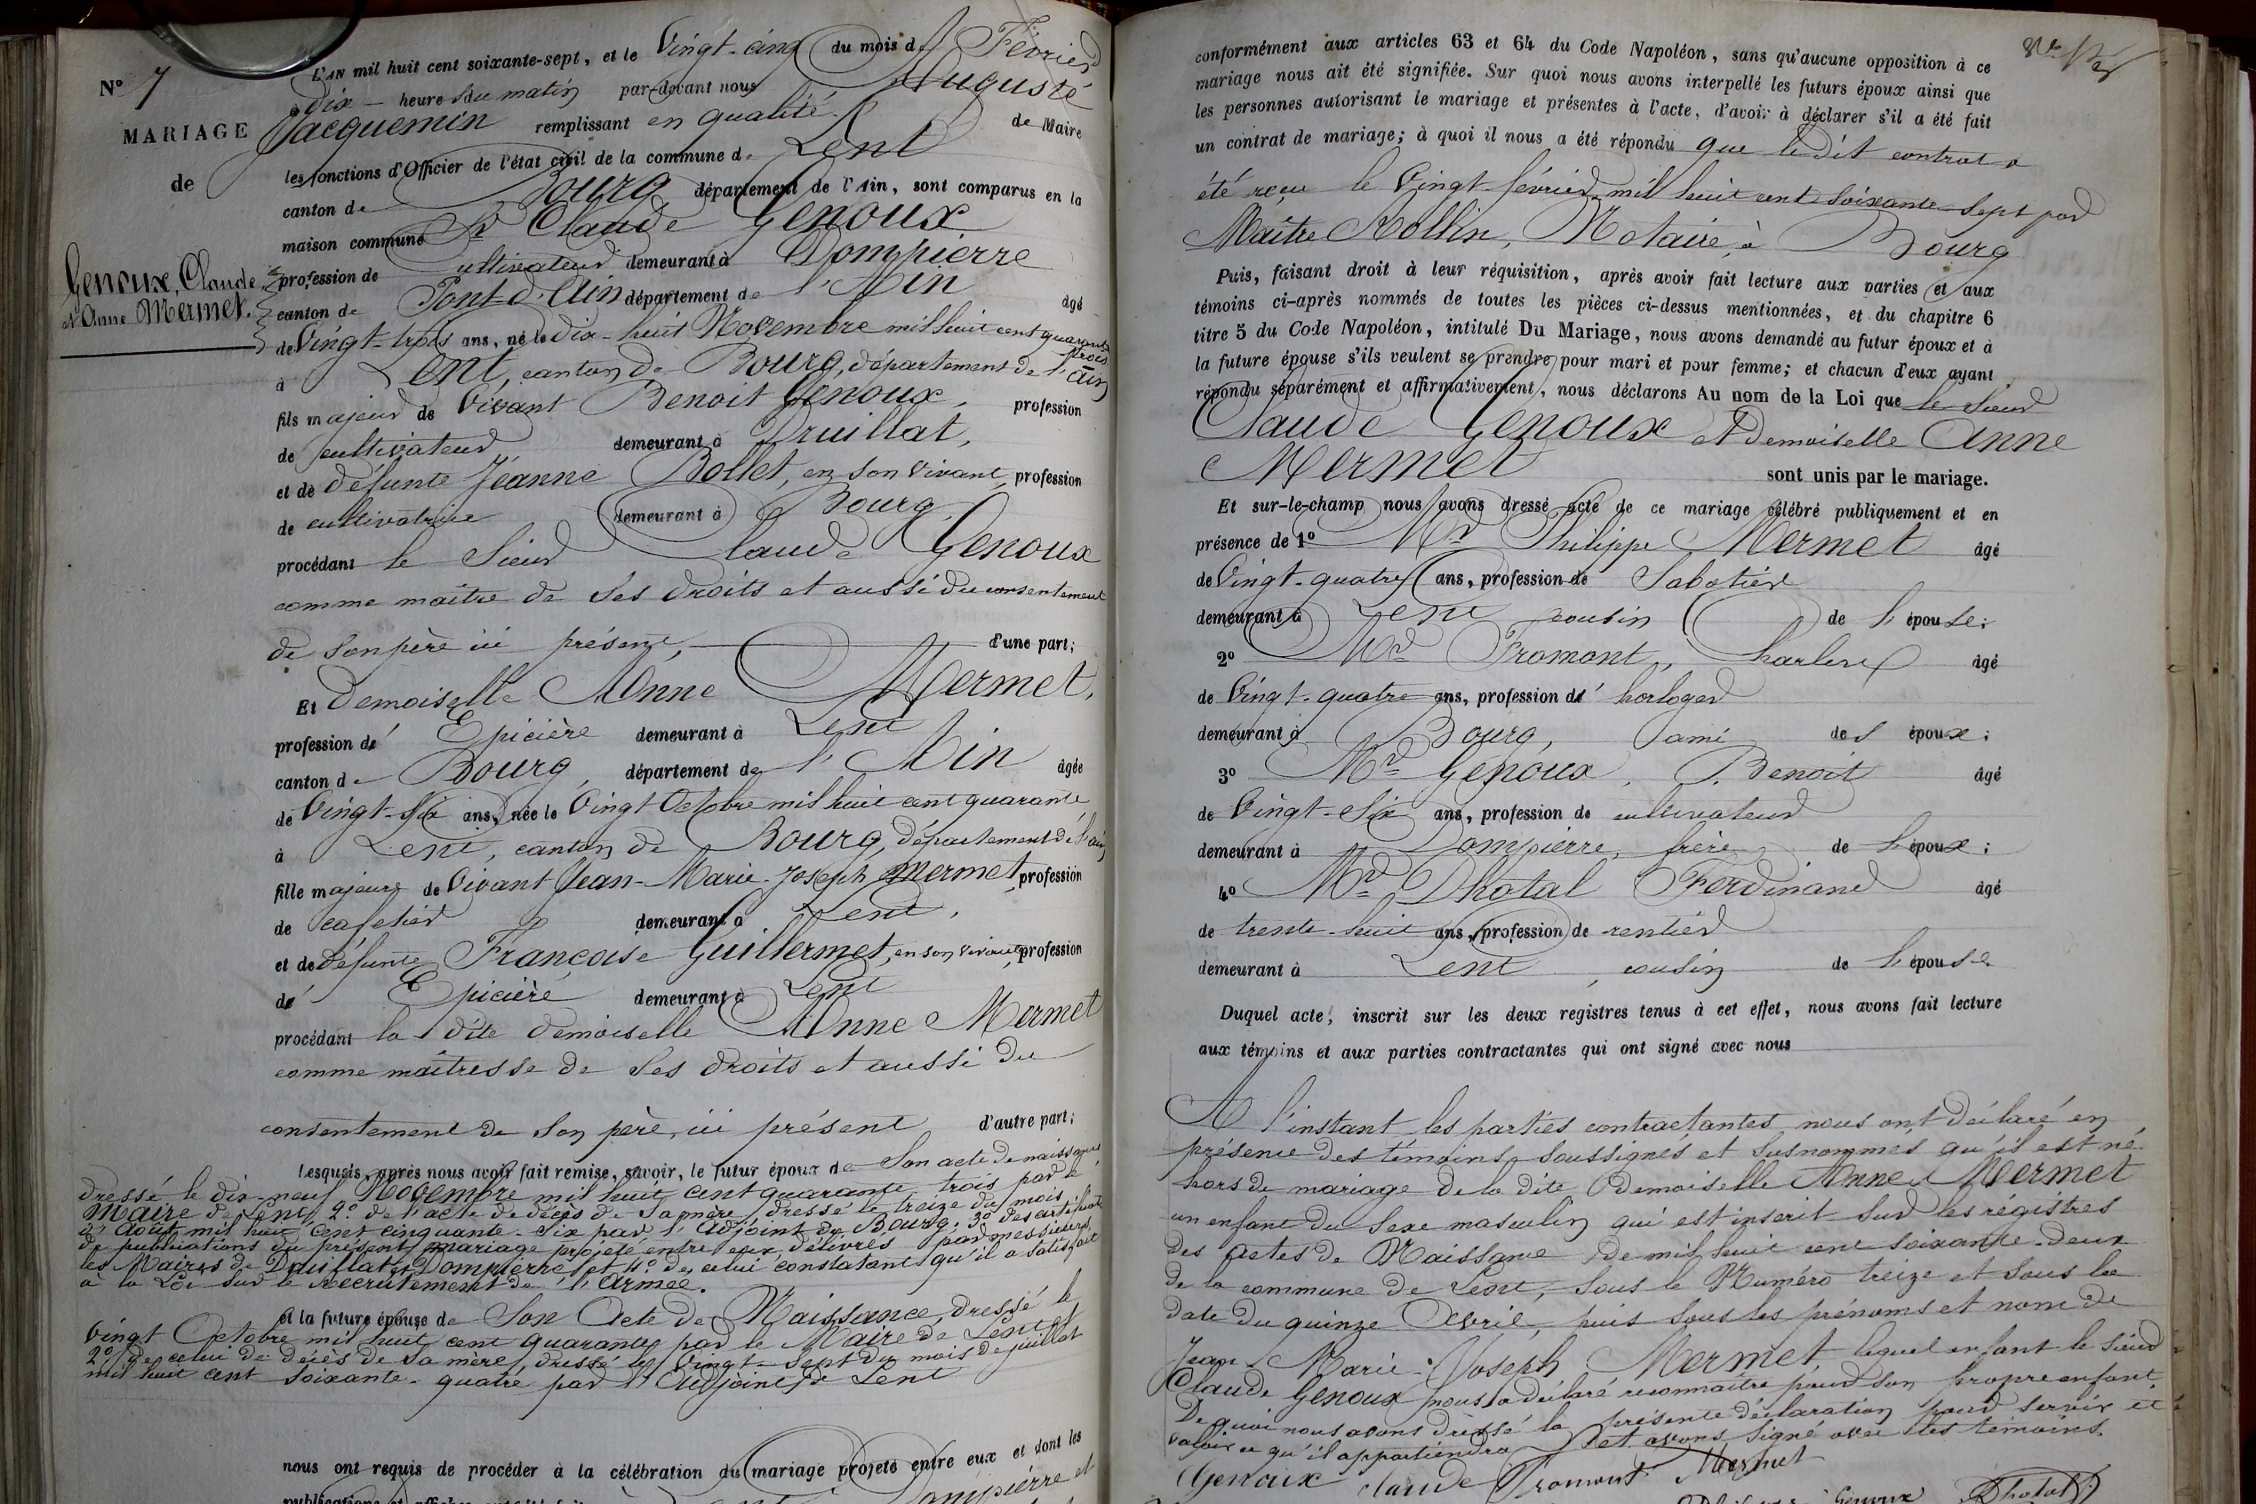 N° 7
MARIAGE
de
Genoux, Claude
et Anne Mermet.
L'AN mil huit cent soixante-sept, et le Vingt-cinq du mois de Février
dix heures du matin par-devant nous Auguste
Jacquemin remplissant en qualité de Maire
les fonctions d'Officier de l'état civil de la commune de Lent
canton de Bourg département de l'Ain, sont comparus en la
maison commune Sr Claude Genoux
profession de cultivateur demeurant à Dompierre
canton de Pont-d'Ain département de l'Ain âgé
de Vingt-trois ans, né le dix-huit Novembre mil huit cent quarante trois
à Lent, canton de Bourg, département de l'ain
fils majeur de vivant Benoit Genoux, profession
de cultivateur demeurant à Druillat,
et de défunte Jeanne Bollet, en son vivant, profession
de cultivatrice demeurant à Bourg,
procédant le Sieur Claude Genoux
comme maître de ses droits et aussi du consentement
de son père ici présent, d'une part;
Et Demoiselle Anne Mermet,
profession d' Epicière demeurant à Lent
canton de Bourg, département de l'Ain âgée
de Vingt-six ans, née le Vingt Octobre mil huit cent quarante
à Lent, canton de Bourg, département de l'ain
fille majeure de vivant Jean-Marie-Joseph Mermet, profession
de cafetier demeurant à Lent,
et de défunte Françoise Guillermet, en son vivant, profession
d' Epicière demeurant à Lent
procédant la dite demoiselle Anne Mermet
comme maîtresse de ses droits et aussi du
consentement de son père, ici présent d'autre part;
Lesquels, après nous avoir fait remise, savoir, le futur époux de son acte de naissance
dressé le dix-neuf Novembre mil huit cent quarante trois par le
Maire de Lent, 2° de l'acte de décès de sa mère, dressé le treize du mois
d'Août mil huit cent cinquante-six par l'Adjoint de Bourg, 3° des certificats
de publications du présent mariage projeté entre eux délivrés par messieurs
les Maires de Druillat et Dompierre, et 4° de celui constatant qu'il a satisfait
à la Loi sur le Recrutement de l'Armée.
et la future épouse de Son Acte de Naissance, dressé le
vingt Octobre mil huit cent quarante par le Maire de Lent et
2° de celui de décès de sa mère, dressé le Vingt-sept du mois de juillet
mil huit cent soixante-quatre par l'Adjoint de Lent
nous ont requis de procéder à la célébration du mariage projeté entre eux et dont les
conformément aux articles 63 et 64 du Code Napoléon, sans qu'aucune opposition à ce
mariage nous ait été signifiée. Sur quoi nous avons interpellé les futurs époux ainsi que
les personnes autorisant le mariage et présentes à l'acte, d'avoir à déclarer s'il a été fait
un contrat de mariage; à quoi il nous a été répondu que le dit contrat a
été reçu le Vingt février mil huit cent soixante-sept par
Maître Rollin, Notaire à Bourg
Puis, faisant droit à leur réquisition, après avoir fait lecture aux parties et aux
témoins ci-après nommés de toutes les pièces ci-dessus mentionnées, et du chapitre 6
titre 5 du Code Napoléon, intitulé Du Mariage, nous avons demandé au futur époux et à
la future épouse s'ils veulent se prendre pour mari et pour femme; et chacun d'eux ayant
répondu séparément et affirmativement, nous déclarons Au nom de la Loi que le Sieur
Claude Genoux et Demoiselle Anne
Mermet sont unis par le mariage.
Et sur-le-champ nous avons dressé acte de ce mariage célébré publiquement et en
présence de 1° Mr Philippe Mermet âgé
de Vingt-quatre ans, profession de Sabotier
demeurant à Lent cousin de l'épouse;
2° Mr Fromont, Charles âgé
de Vingt-quatre ans, profession d' horloger
demeurant à Bourg, ami des époux;
3° Mr Genoux, Benoit âgé
de Vingt-six ans, profession de cultivateur
demeurant à Dompierre, frère de l'époux;
4° Mr Dhotal Ferdinand âgé
de trente-huit ans, profession de rentier
demeurant à Lent, cousin de l'épouse
Duquel acte, inscrit sur les deux registres tenus à cet effet, nous avons fait lecture
aux témoins et aux parties contractantes qui ont signé avec nous
A l'instant les parties contractantes nous ont déclaré en
présence des témoins soussignés et susnommés qu'il est né
hors de mariage de la dite Demoiselle Anne Mermet
un enfant du sexe masculin qui est inscrit sur les régistres
des actes de Naissance de mil huit cent soixante-deux
de la commune de Lent, sous le Numéro treize et sous la
date du quinze Avril, puis sous les prénoms et nom de
Jean-Marie-Joseph Mermet, lequel enfant le Sieur
Claude Genoux nous a déclaré reconnaître pour son propre enfant.
De quoi nous avons dressé la présente déclaration pour servir et
valoir ce qu'il appartiendra et avons signé avec les témoins.
Genoux Claude Fromont Mermet
Genoux Dhotal